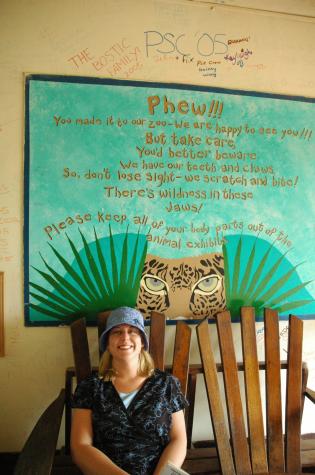 PSC OS
THE BOSTIC
FAMILY
Phew!!!
You made it to our zoo-We are happy to see you!!!
But take care,
You'd better beware
We have our teeth and claws
So, don't lose sight-we scratch and bite!
There's wildness in these
Jaws!
Please keep all of your body parts out of the
animal exhibits